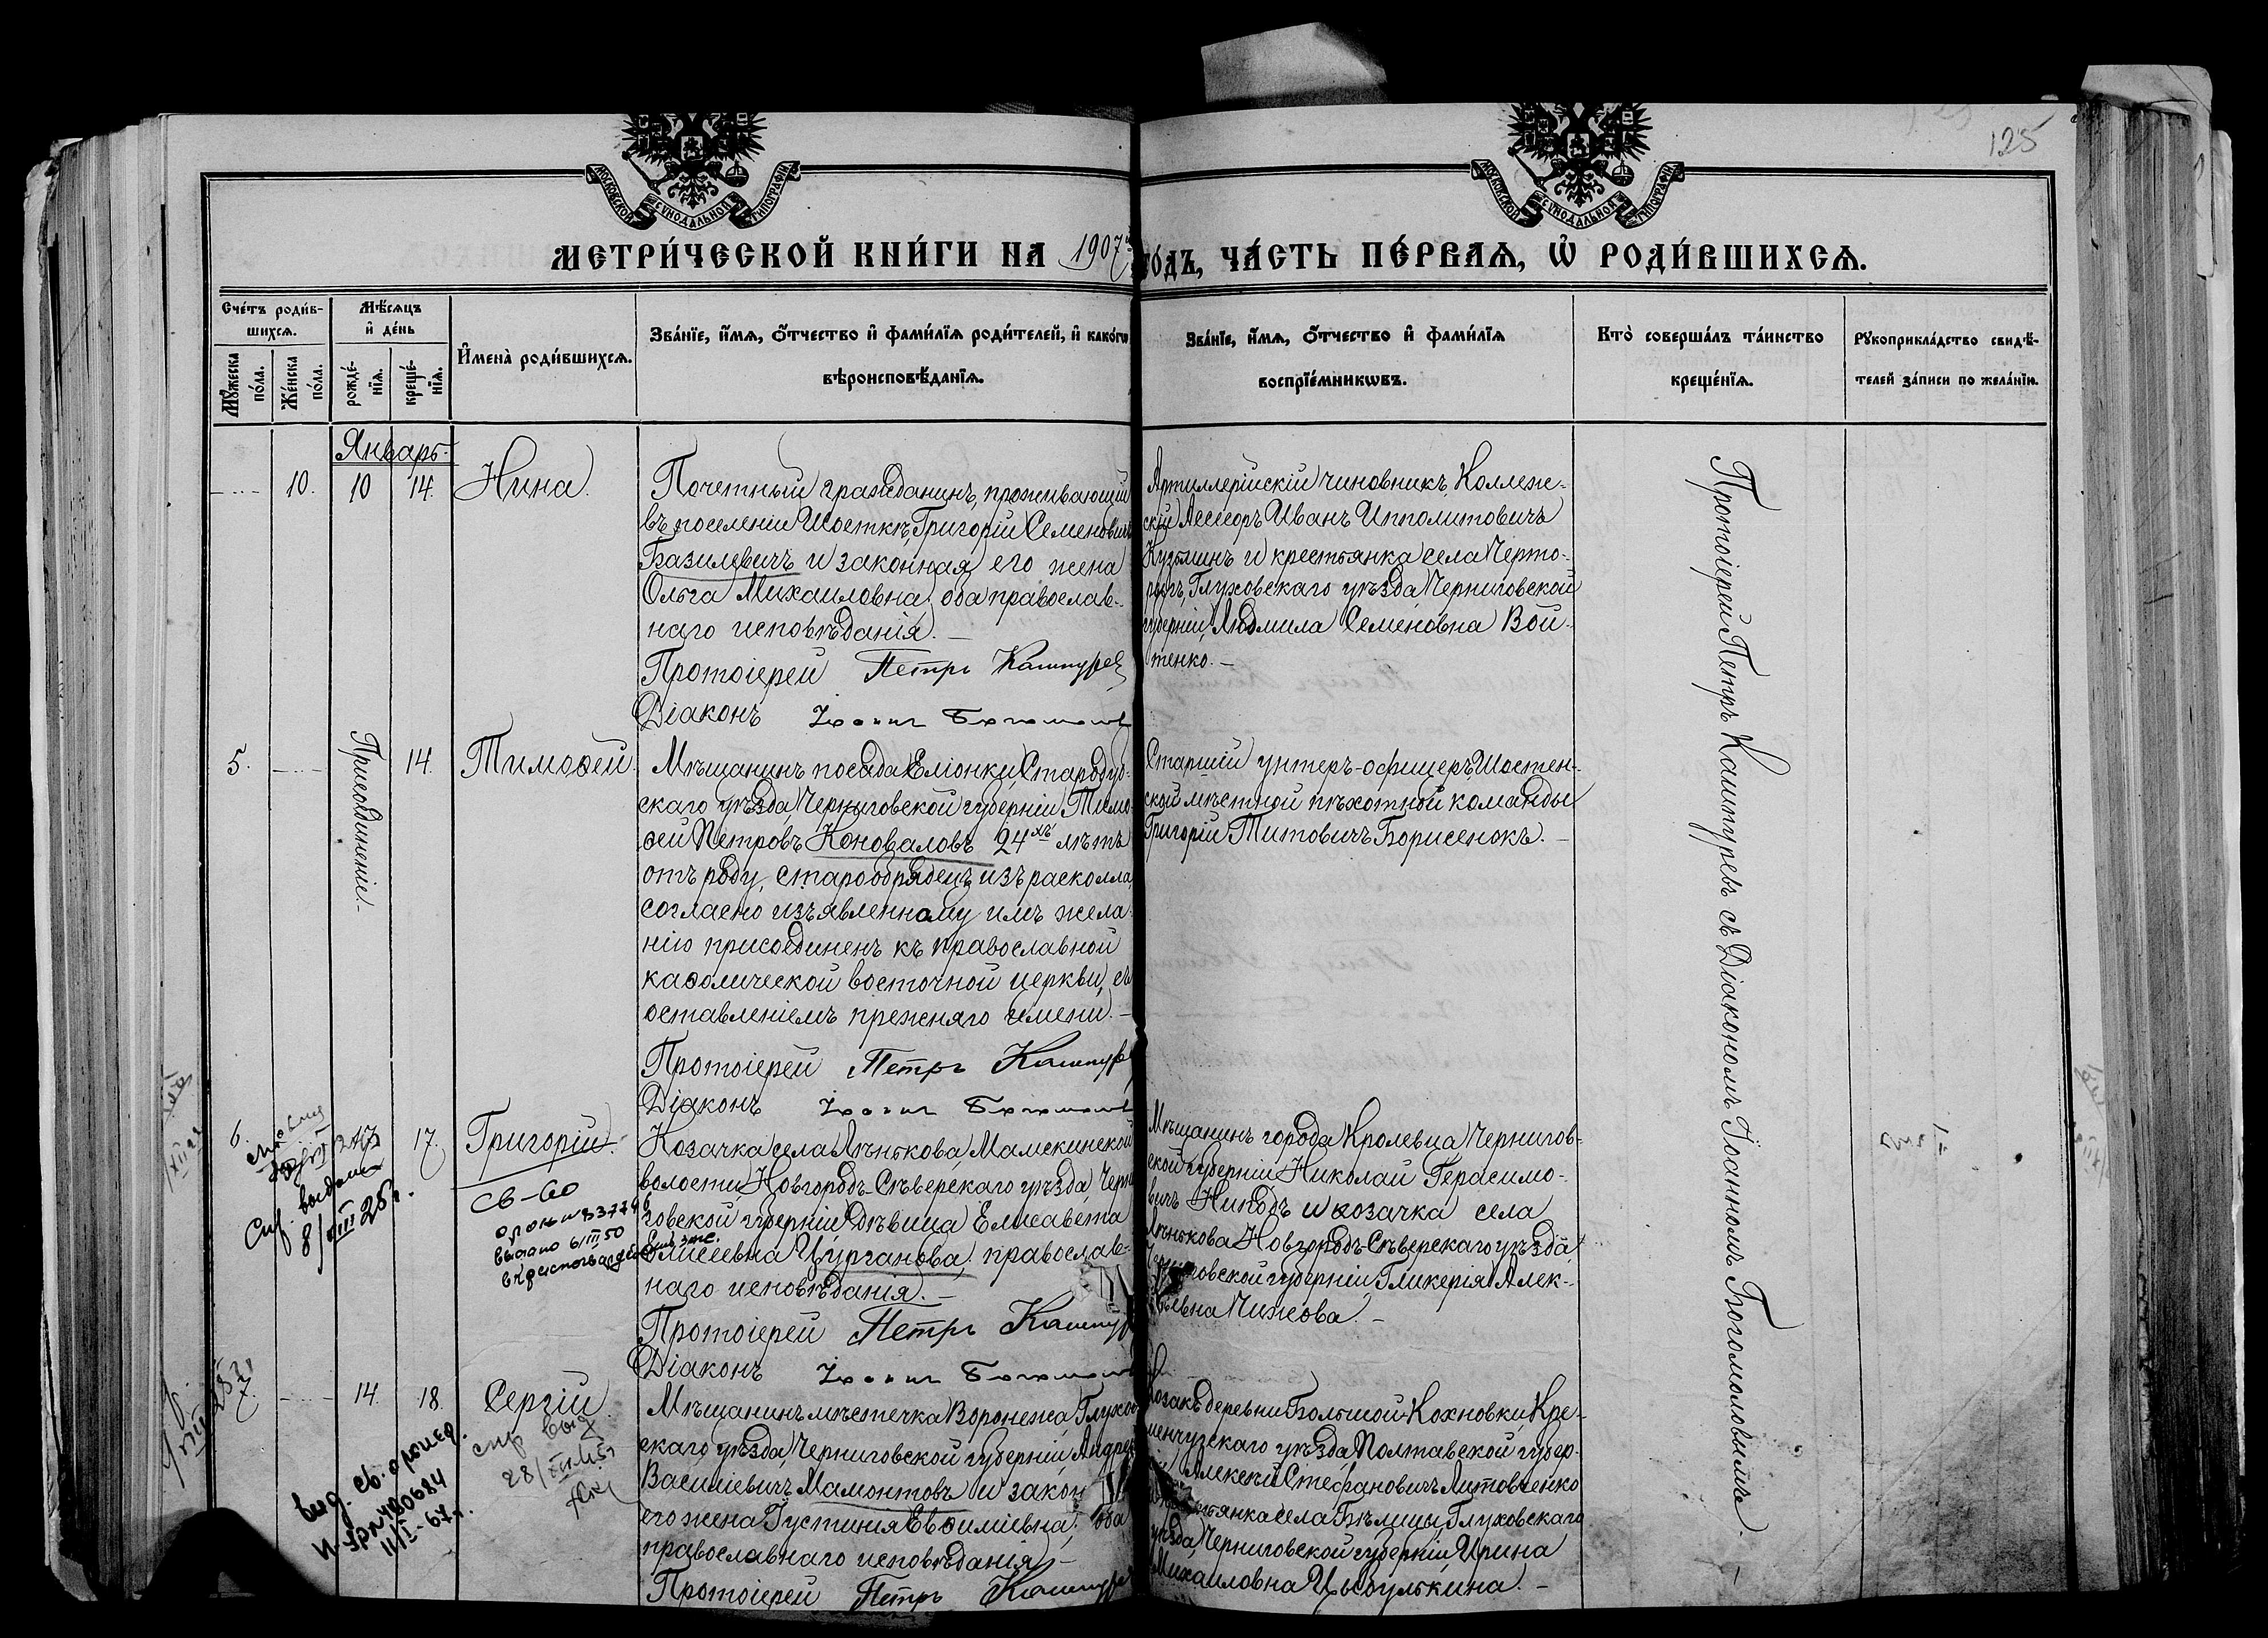 125
МОСКОВСКОЙ СѴНОДАЛЬНОЙ ТИПОГРАФІИ
МОСКОВСКОЙ СѴНОДАЛЬНОЙ ТИПОГРАФІИ
МЕТРИ́ЧЕСКОЙ КНИ́ГИ НА 1907 го́дъ, ЧА́СТЬ ПЕ́РВАѦ, Ѡ҆ РОДИ́ВШИХСѦ.
Сче́тъ роди́в-
шихсѧ.
Мꙋжеска по́ла.
Же́нска по́ла.
Мѣ́сѧцъ
и҆ де́нь
рожде́-
нїѧ.
креще́-
нїѧ.
И҆мена̀ роди́вшихсѧ.
Зва́нїе, и҆́мѧ, ѻ҆́тчество и҆ фами́лїѧ роди́телей, и҆ како́гѡ
вѣроисповѣ́данїѧ.
Зва́нїе, и҆́мѧ, ѻ҆́тчество и҆ фами́лїѧ
воспрїе́мникѡвъ.
Кто̀ соверша́лъ та́инство
креще́нїѧ.
Рꙋкоприкла́дство свидѣ́-
телей за́писи по жела́нїю.
Январь
10. 10 14. Нина.
Почетный гражданинъ, проживающій
въ поселеніи Шосткѣ, Григорій Семеновичъ
Базилевичъ и законная его жена
Ольга Михаиловна, оба православ-
наго исповѣданія.
Протоіерей Петръ Кашпуревъ
Діаконъ
Артиллерійскій чиновникъ, Коллеж-
скій Ассесоръ Иванъ Ипполитовичъ
Кузьминъ и крестьянка села Черто-
Глуховскаго уѣзда Черниговской
губерніи, Людмила Семеновна Вой-
тенко.
5. Присоединеніе. 14. Тимоѳей.
Мѣщанинъ посада Еліонки, Стародуб-
скаго уѣзда, Черниговской губерніи, Тимо-
ѳей Петровъ Коноваловъ 24хъ лѣтъ
отъ роду, старообрядецъ изъ расколла,
согласно изъявленному имъ жела-
нію присоединенъ къ православной
каѳолической восточной церкви, съ
оставленіемъ прежняго имени.
Протоіерей Петръ
Діаконъ
Старшій унтеръ-офицеръ Шостен-
ской мѣстной пѣхотной команды
Григорій Титовичъ Борисенокъ.
6. 17. Григорій.
Козачка села Лѣнькова, Мамекинской
волости, Новгородъ-Сѣверскаго уѣзда, Черни-
говской губерніи дѣвица Елисавета
Елисеевна Цурганова, православ-
наго исповѣданія.
Протоіерей Петръ
Діаконъ
Мѣщанинъ города Кролевца, Чернигов-
ской губерніи Николай Герасимо-
вичъ и козачка села
Лѣнькова Новгородъ-Сѣверскаго уѣзда,
Черниговской губерніи, Гликерія Алек-
Чижова.
выдана
8/VIII 25 г.
св-во
выдано 6/III 50
7. 14. 18. Сергій.
Мѣщанинъ мѣстечка Воронежа, Глухов-
скаго уѣзда, Черниговской губерніи, Андрей
Василіевичъ Мамонтовъ и закон
его жена Іустинія Евѳиміевна, оба
православнаго исповѣданія.
Протоіерей Петръ
Козакъ деревни Большой Кохновки, Кре-
менчугскаго уѣзда, Полтавской губер-
Алексѣй Стефановичъ Литовченко
села Бѣлицы, Глуховскаго
уѣзда, Черниговской губерніи, Ирина
Михаиловна Цыбулькина.
Протоіерей Петръ Кашпуревъ съ Діакономъ Іоанномъ Богомоловымъ.